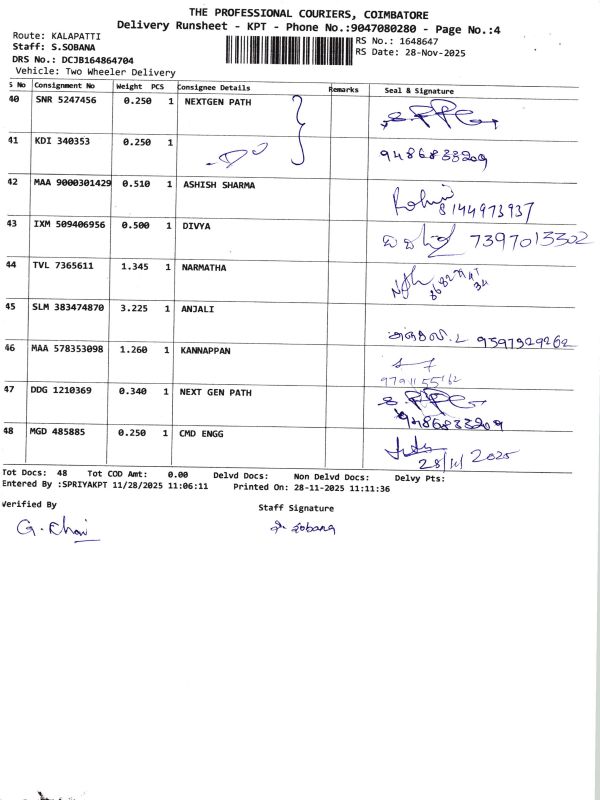 THE PROFESSIONAL COURIERS, COIMBATORE
Delivery Runsheet - KPT - Phone No.:9047080280 - Page No.:4
Route: KALAPATTI
RS No.: 1648647
Staff: S.SOBANA
RS Date: 28-Nov-2025
DRS No.: DCJB164864704
Vehicle: Two Wheeler Delivery
S No Consignment No Weight PCS Consignee Details Remarks Seal & Signature
40 SNR 5247456 0.250 1 NEXTGEN PATH
41 KDI 340353 0.250 1 9486833209
42 MAA 9000301429 0.510 1 ASHISH SHARMA Rohini 8144973937
43 IXM 509406956 0.500 1 DIVYA 7397013302
44 TVL 7365611 1.345 1 NARMATHA
45 SLM 383474870 3.225 1 ANJALI 9597329262
46 MAA 578353098 1.260 1 KANNAPPAN
47 DDG 1210369 0.340 1 NEXT GEN PATH 9486833209
48 MGD 485885 0.250 1 CMD ENGG 28/11/2025
Tot Docs: 48 Tot COD Amt: 0.00 Delvd Docs: Non Delvd Docs: Delvy Pts:
Entered By :SPRIYAKPT 11/28/2025 11:06:11 Printed On: 28-11-2025 11:11:36
Verified By
Staff Signature